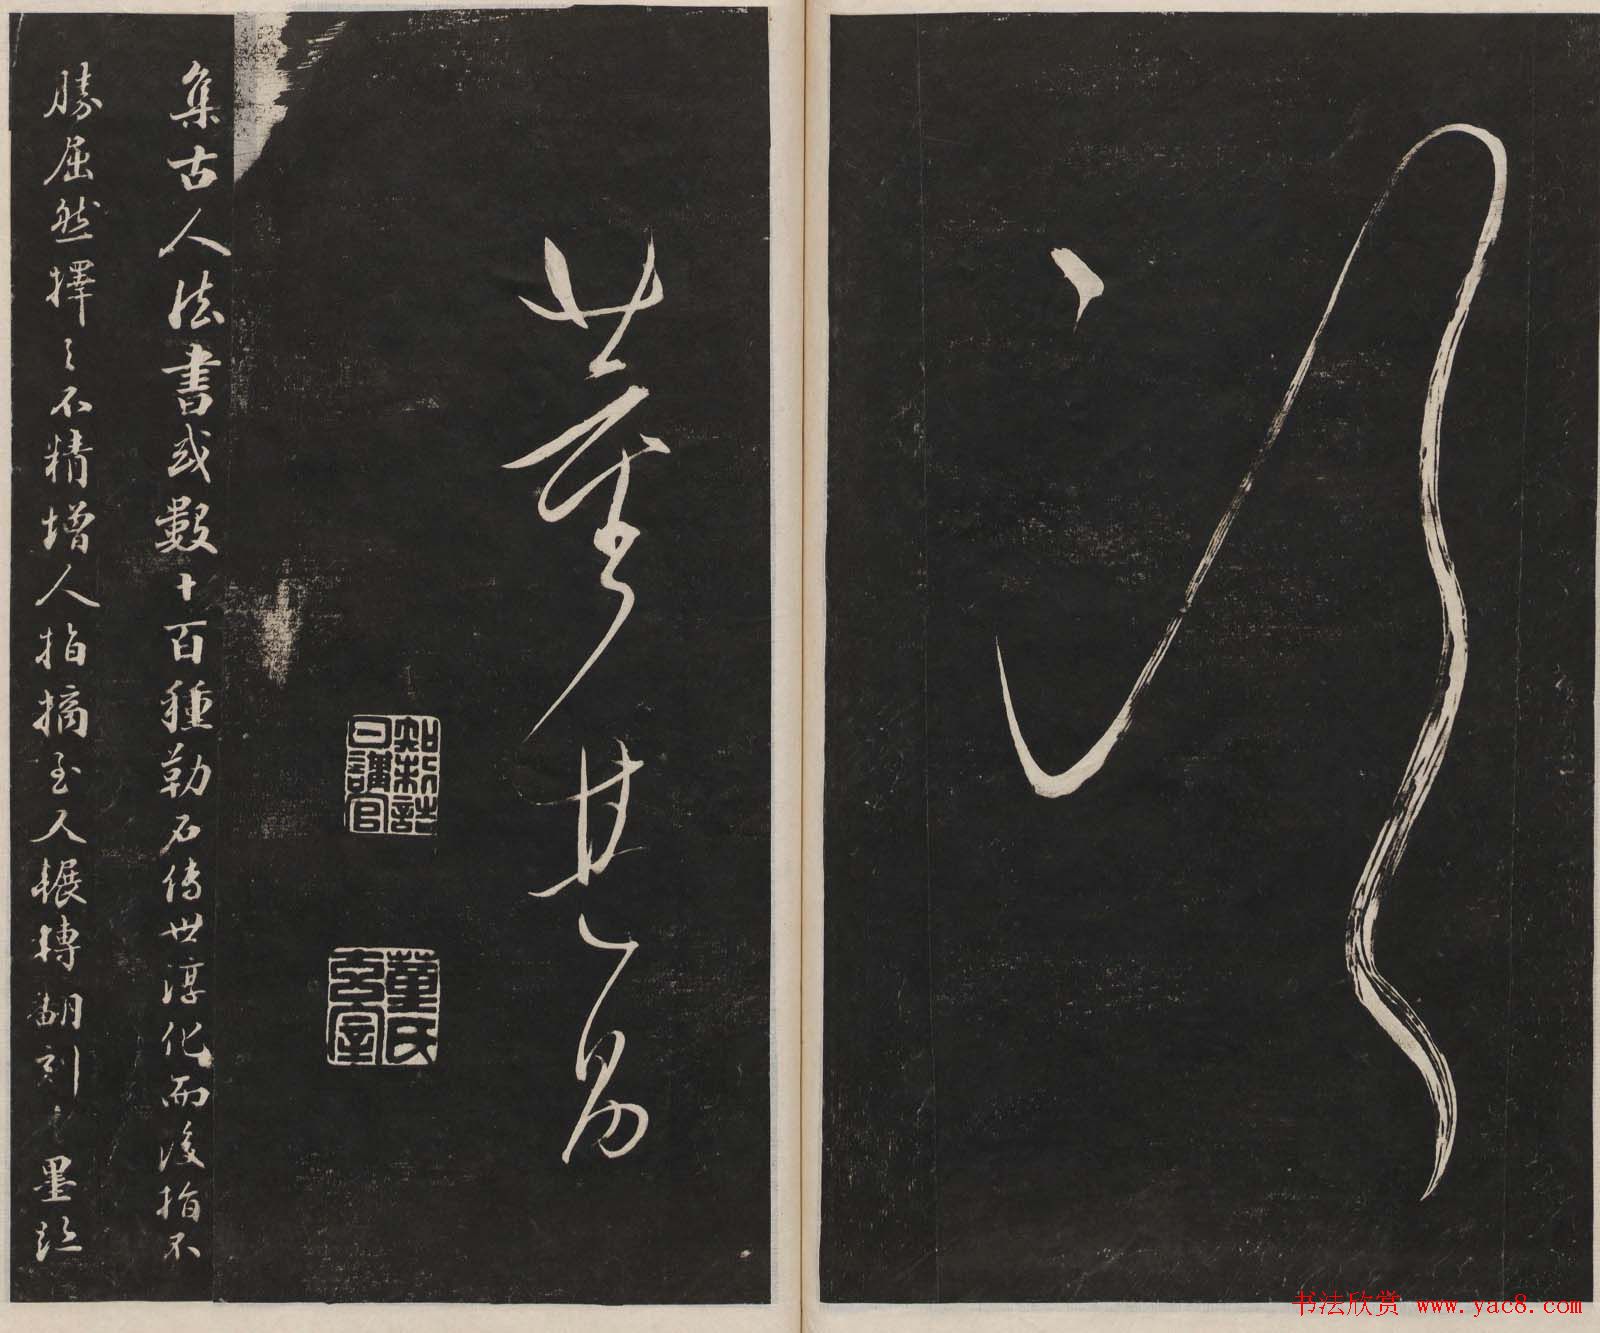 董其昌
知制誥日講官
董氏玄宰
集古人法書或數十百種勒石傳世淳化而後指不
勝屈然擇之不精增人指摘至人輾轉翻刻之墨跡
书法欣赏 www.yac8.com